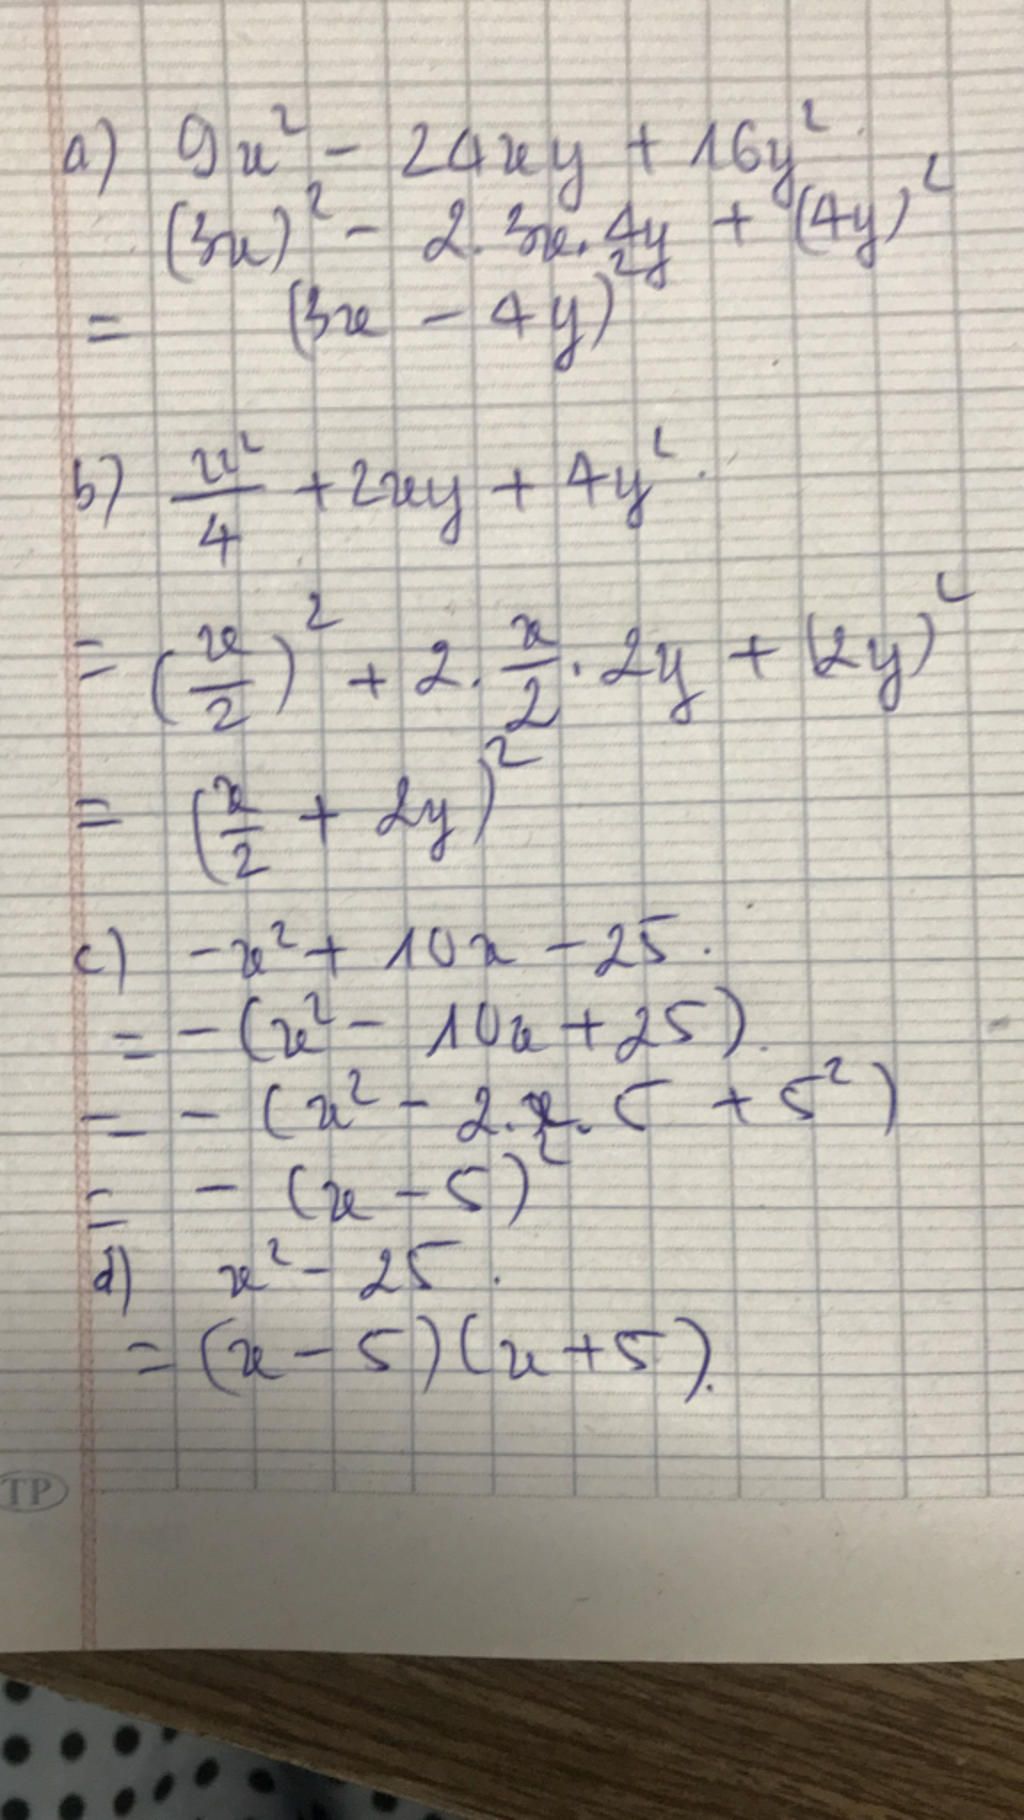 a) 9x² - 24xy + 16y².
(3x)² - 2.3x.4y + (4y)²
= (3x - 4y)²
b) x²/4 + 2xy + 4y².
= (x/2)² + 2.x/2.2y + (2y)²
= (x/2 + 2y)²
c) -x² + 10x - 25.
= -(x² - 10x + 25).
= -(x² - 2.x.5 + 5²)
= -(x - 5)²
d) x² - 25.
= (x - 5)(x + 5).
TP